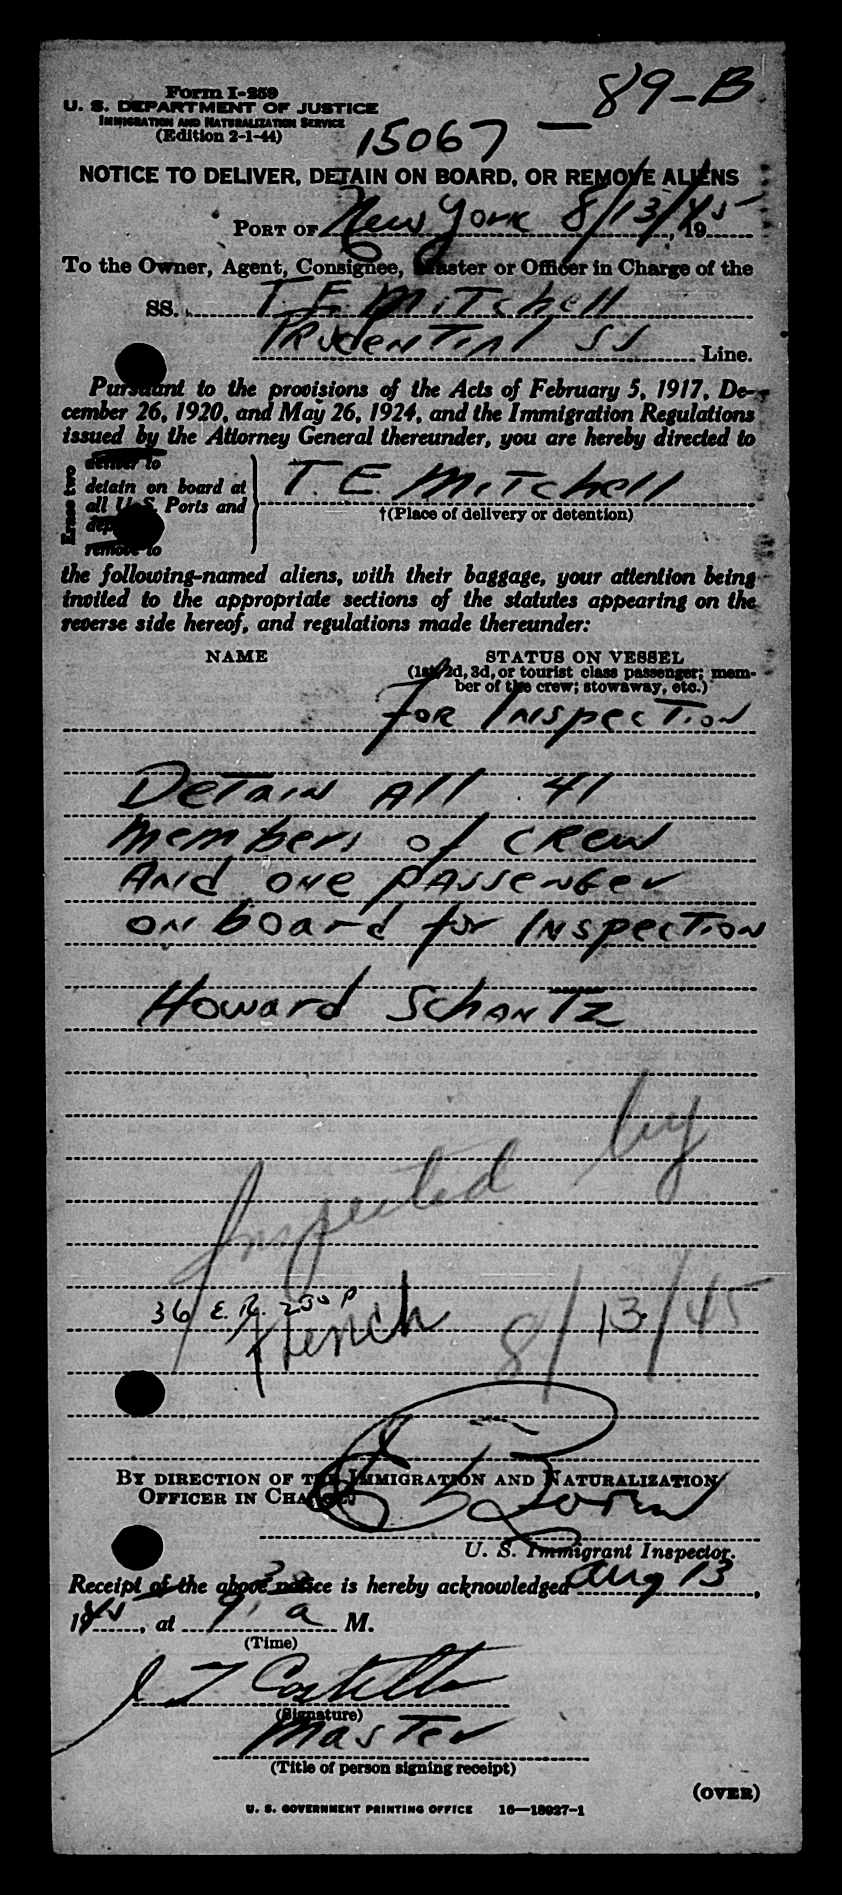 89-B
Form I-259
U. S. DEPARTMENT OF JUSTICE
IMMIGRATION AND NATURALIZATION SERVICE
(Edition 2-1-44)
15067 —
NOTICE TO DELIVER, DETAIN ON BOARD, OR REMOVE ALIENS
PORT OF New York 8/13/45, 19
To the Owner, Agent, Consignee, Master or Officer in Charge of the
SS. T. E. Mitchell
Prudential SS Line.
Pursuant to the provisions of the Acts of February 5, 1917, De-
cember 26, 1920, and May 26, 1924, and the Immigration Regulations
issued by the Attorney General thereunder, you are hereby directed to
Erase two
deliver to
detain on board at
all U. S. Ports and
remove to
T. E. Mitchell
†(Place of delivery or detention)
the following-named aliens, with their baggage, your attention being
invited to the appropriate sections of the statutes appearing on the
reverse side hereof, and regulations made thereunder:
NAME STATUS ON VESSEL
(1st, 2d, 3d, or tourist class passenger; mem-
ber of the crew; stowaway, etc.)
For Inspection
Detain All 41
members of crew
And one passenger
on board for Inspection
Howard Schantz
Inspected by
36 E. R. 250 P
French 8/13/45
BY DIRECTION OF THE IMMIGRATION AND NATURALIZATION
OFFICER IN CHARGE.
U. S. Immigrant Inspector.
Receipt of the above notice is hereby acknowledged Aug 13,
1945, at 9 30 a M.
(Time)
J T Costello
(Signature)
Master
(Title of person signing receipt)
(OVER)
U. S. GOVERNMENT PRINTING OFFICE 16—18927-1